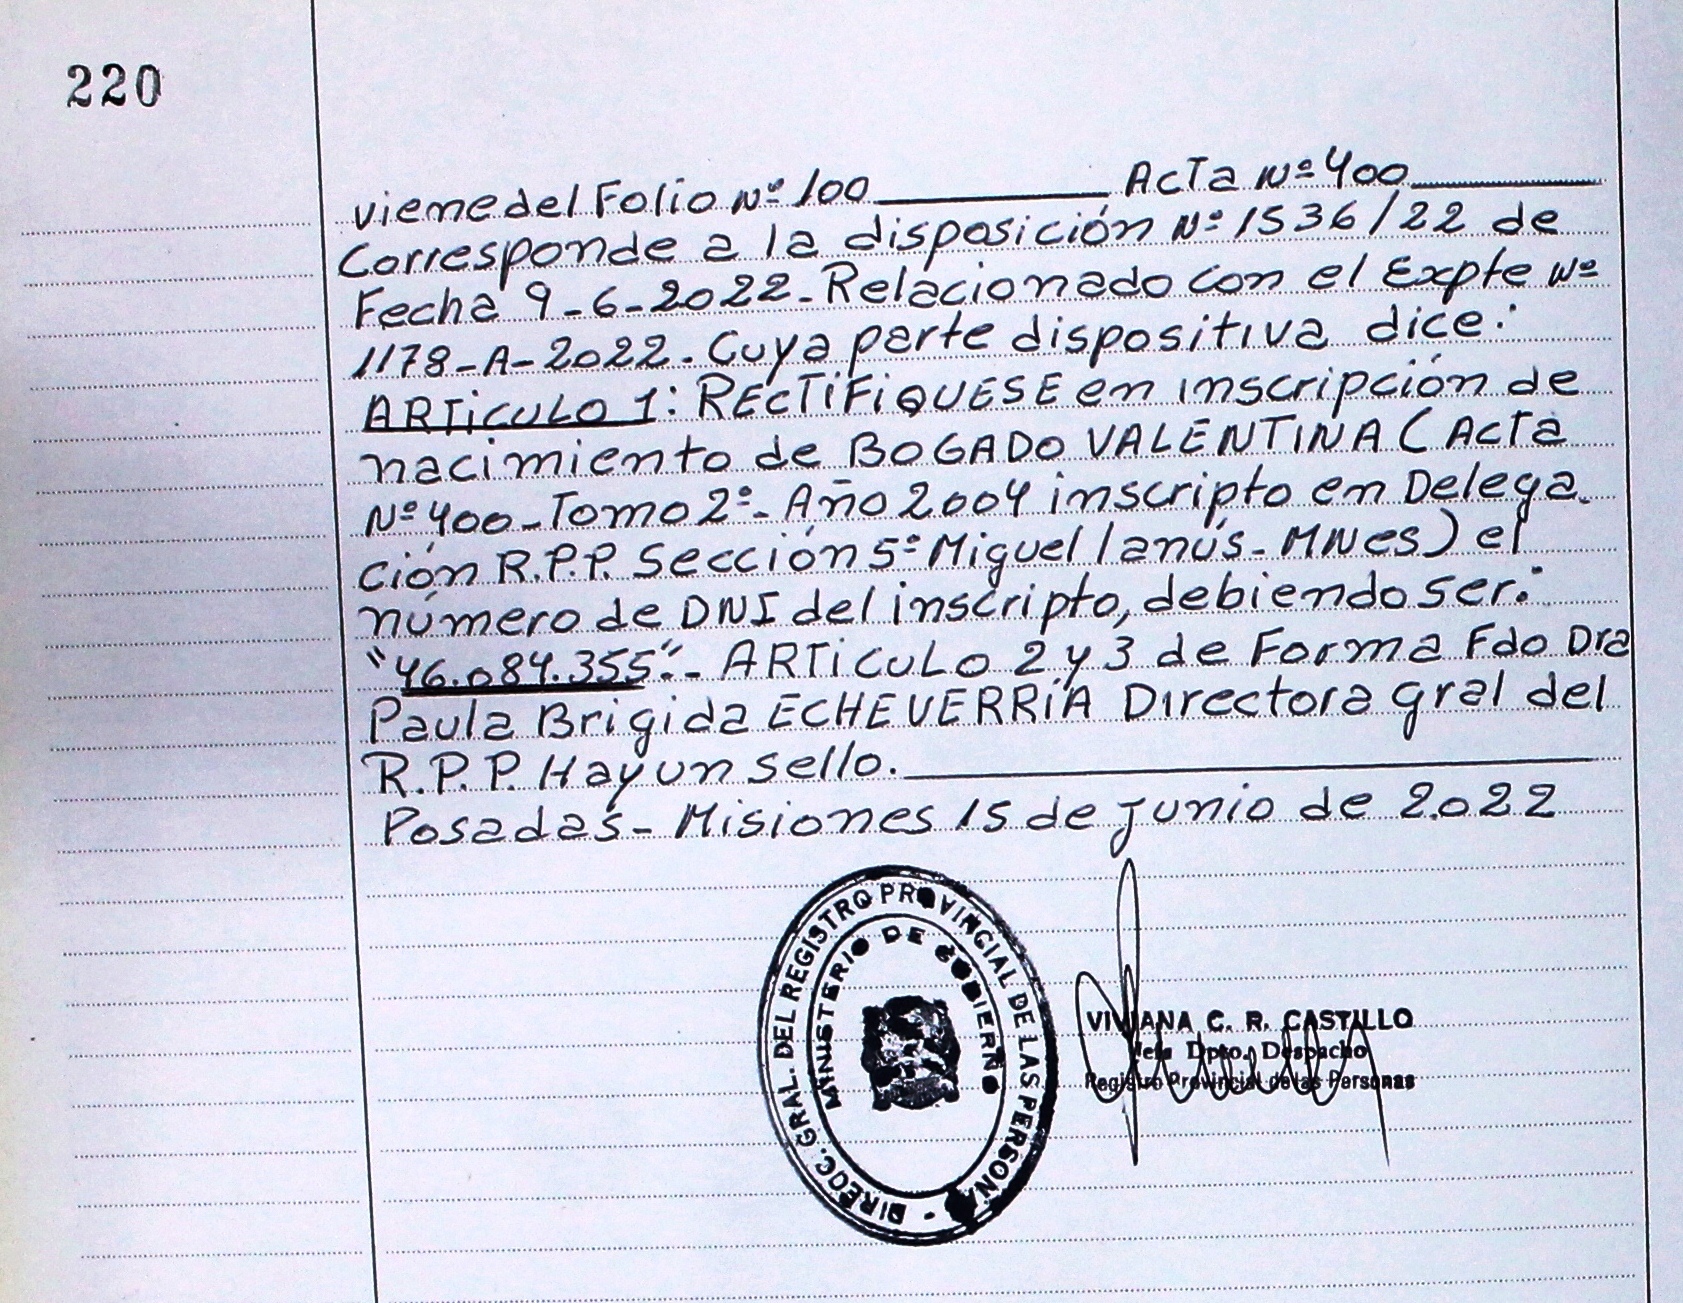 220
viene del Folio Nº 100 ____ Acta Nº 400 ____
Corresponde a la disposición Nº 1536/22 de
Fecha 9-6-2022-Relacionado con el Expte Nº
1178-A-2022. Cuya parte dispositiva dice:
ARTiCULO 1: RECTiFiQUESE en inscripción de
nacimiento de BOGADO VALENTINA (Acta
Nº 400-Tomo 2º- Año 2004 inscripto en Delega-
ción R.P.P. Sección 5º Miguel lanús- MNes) el
número de DNI del inscripto, debiendo ser:
"46.084.355".- ARTiCULO 2 y 3 de Forma Fdo Dra
Paula Brigida ECHEVERRíA Directora gral del
R.P.P. Hay un sello. ____
Posadas- Misiones 15 de junio de 2022
DIRECC. GRAL. DEL REGISTRO PROVINCIAL DE LAS PERSONAS -
MINISTERIO DE GOBIERNO
VIVIANA C. R. CASTILLO
Jefa Dpto. Despacho
Registro Provincial de las Personas